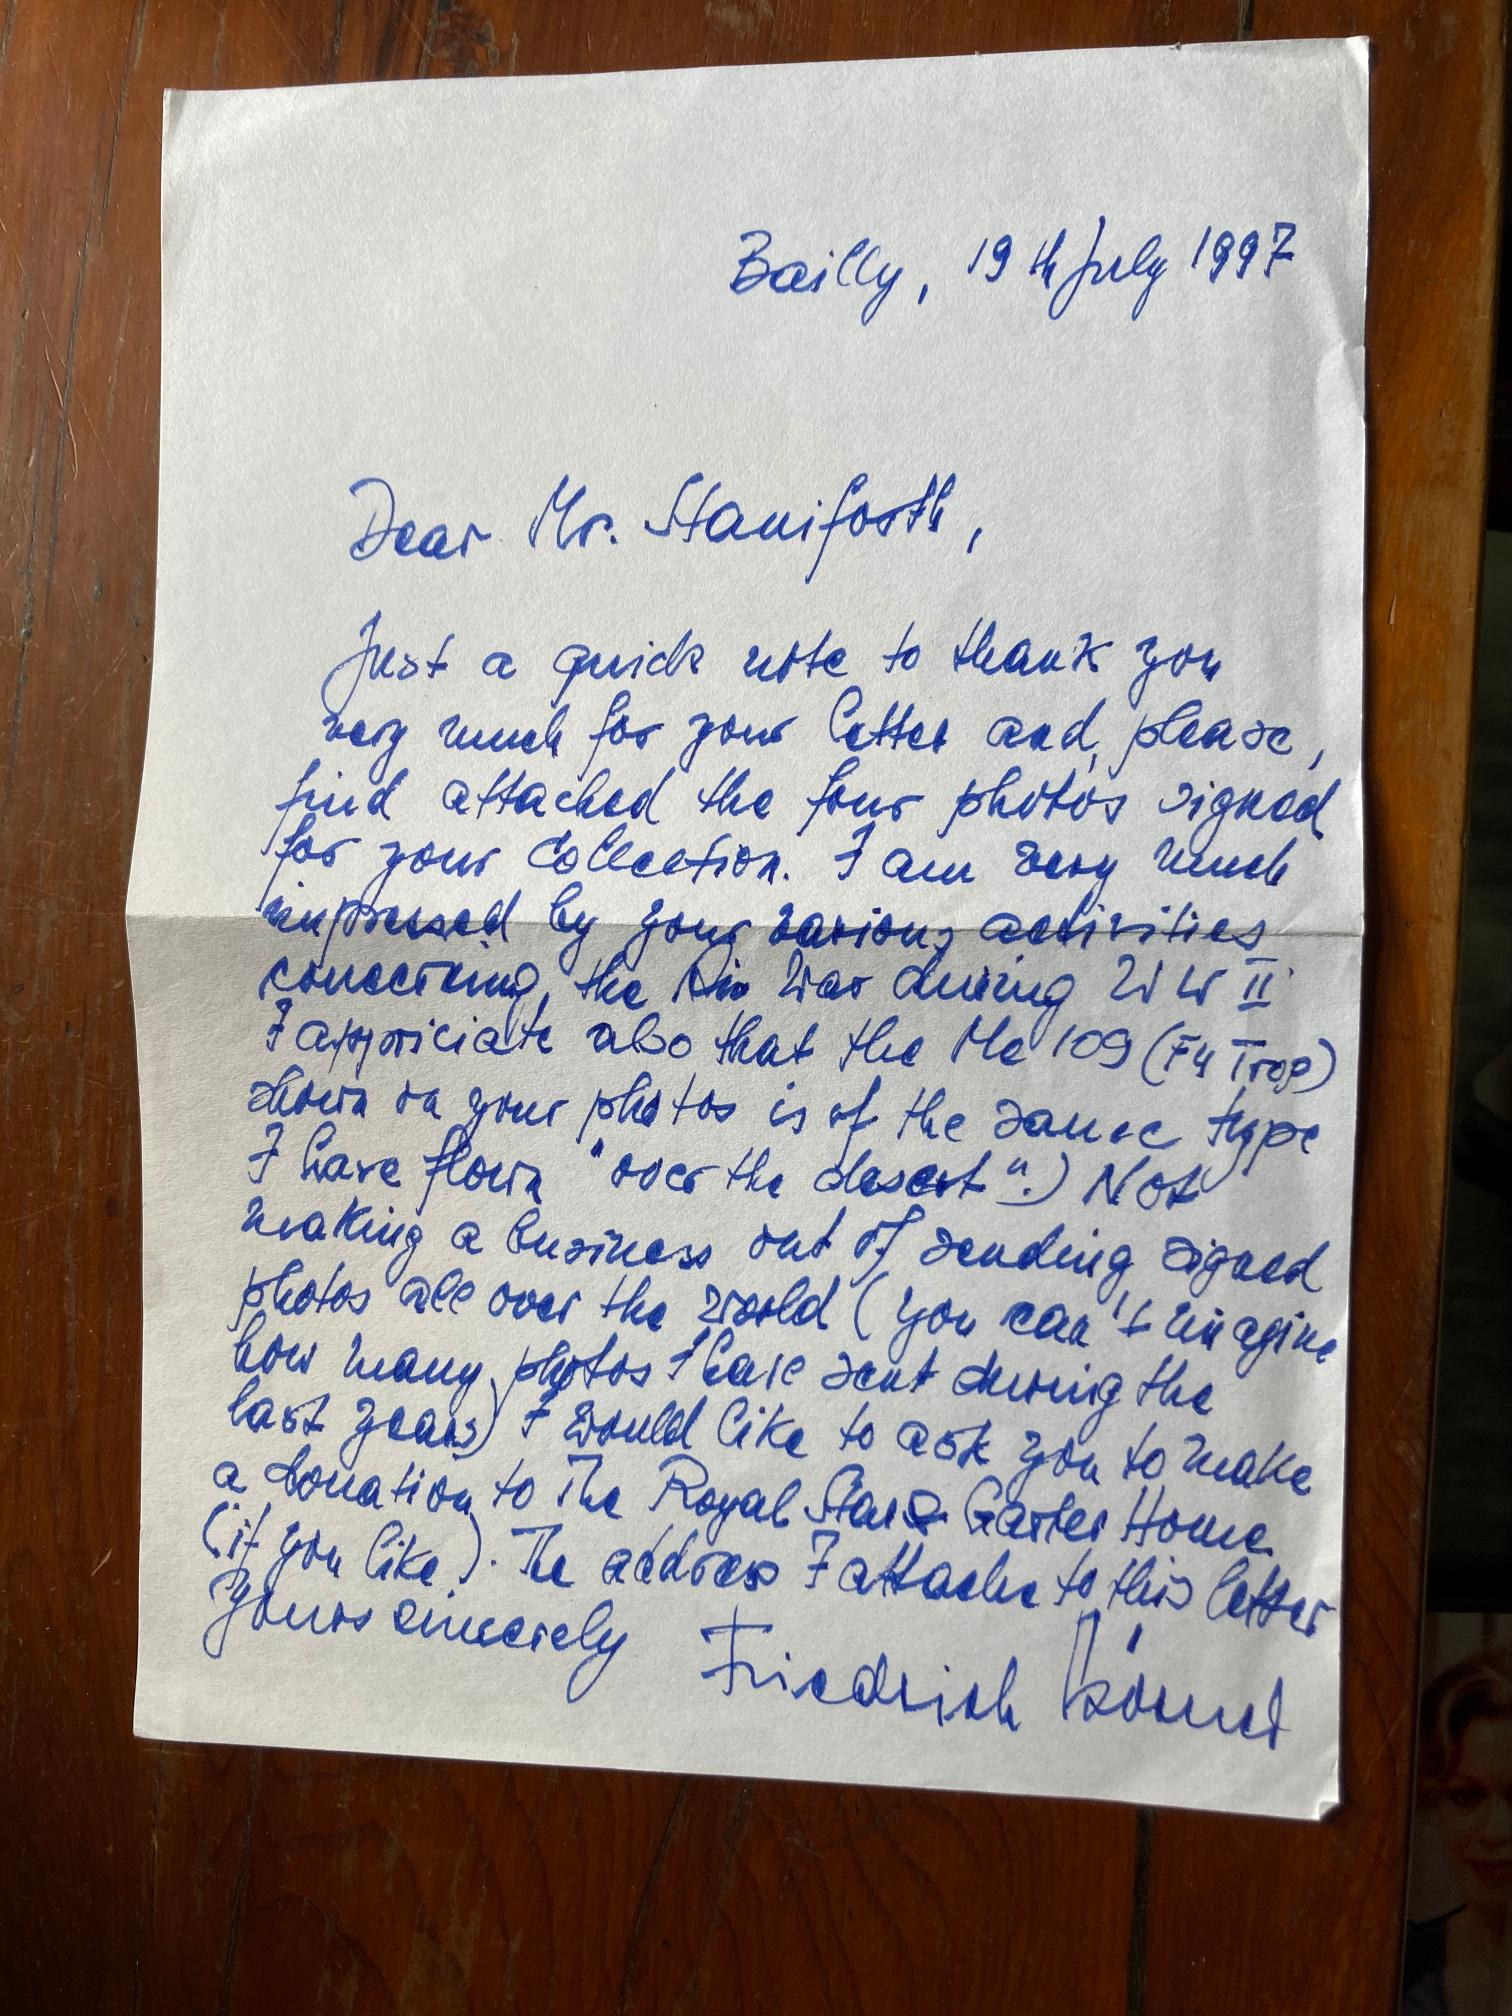 Bailly, 19th July 1997
Dear Mr. Staniforth,
Just a quick note to thank you
very much for your letter and, please,
find attached the four photos signed
for your collection. I am very much
impressed by your various activities
concerning the Air War during WW II
I appriciate also that the Me 109 (F4 Trop)
shown on your photos is of the same type
I have flown "over the desert".) Not
making a business out of sending signed
photos all over the world (you can't imagine
how many photos I have sent during the
last years) I would like to ask you to make
a donation to The Royal Star & Garter Home
(if you like). The address I attache to this letter
Yours sincerely Friedrich Körner